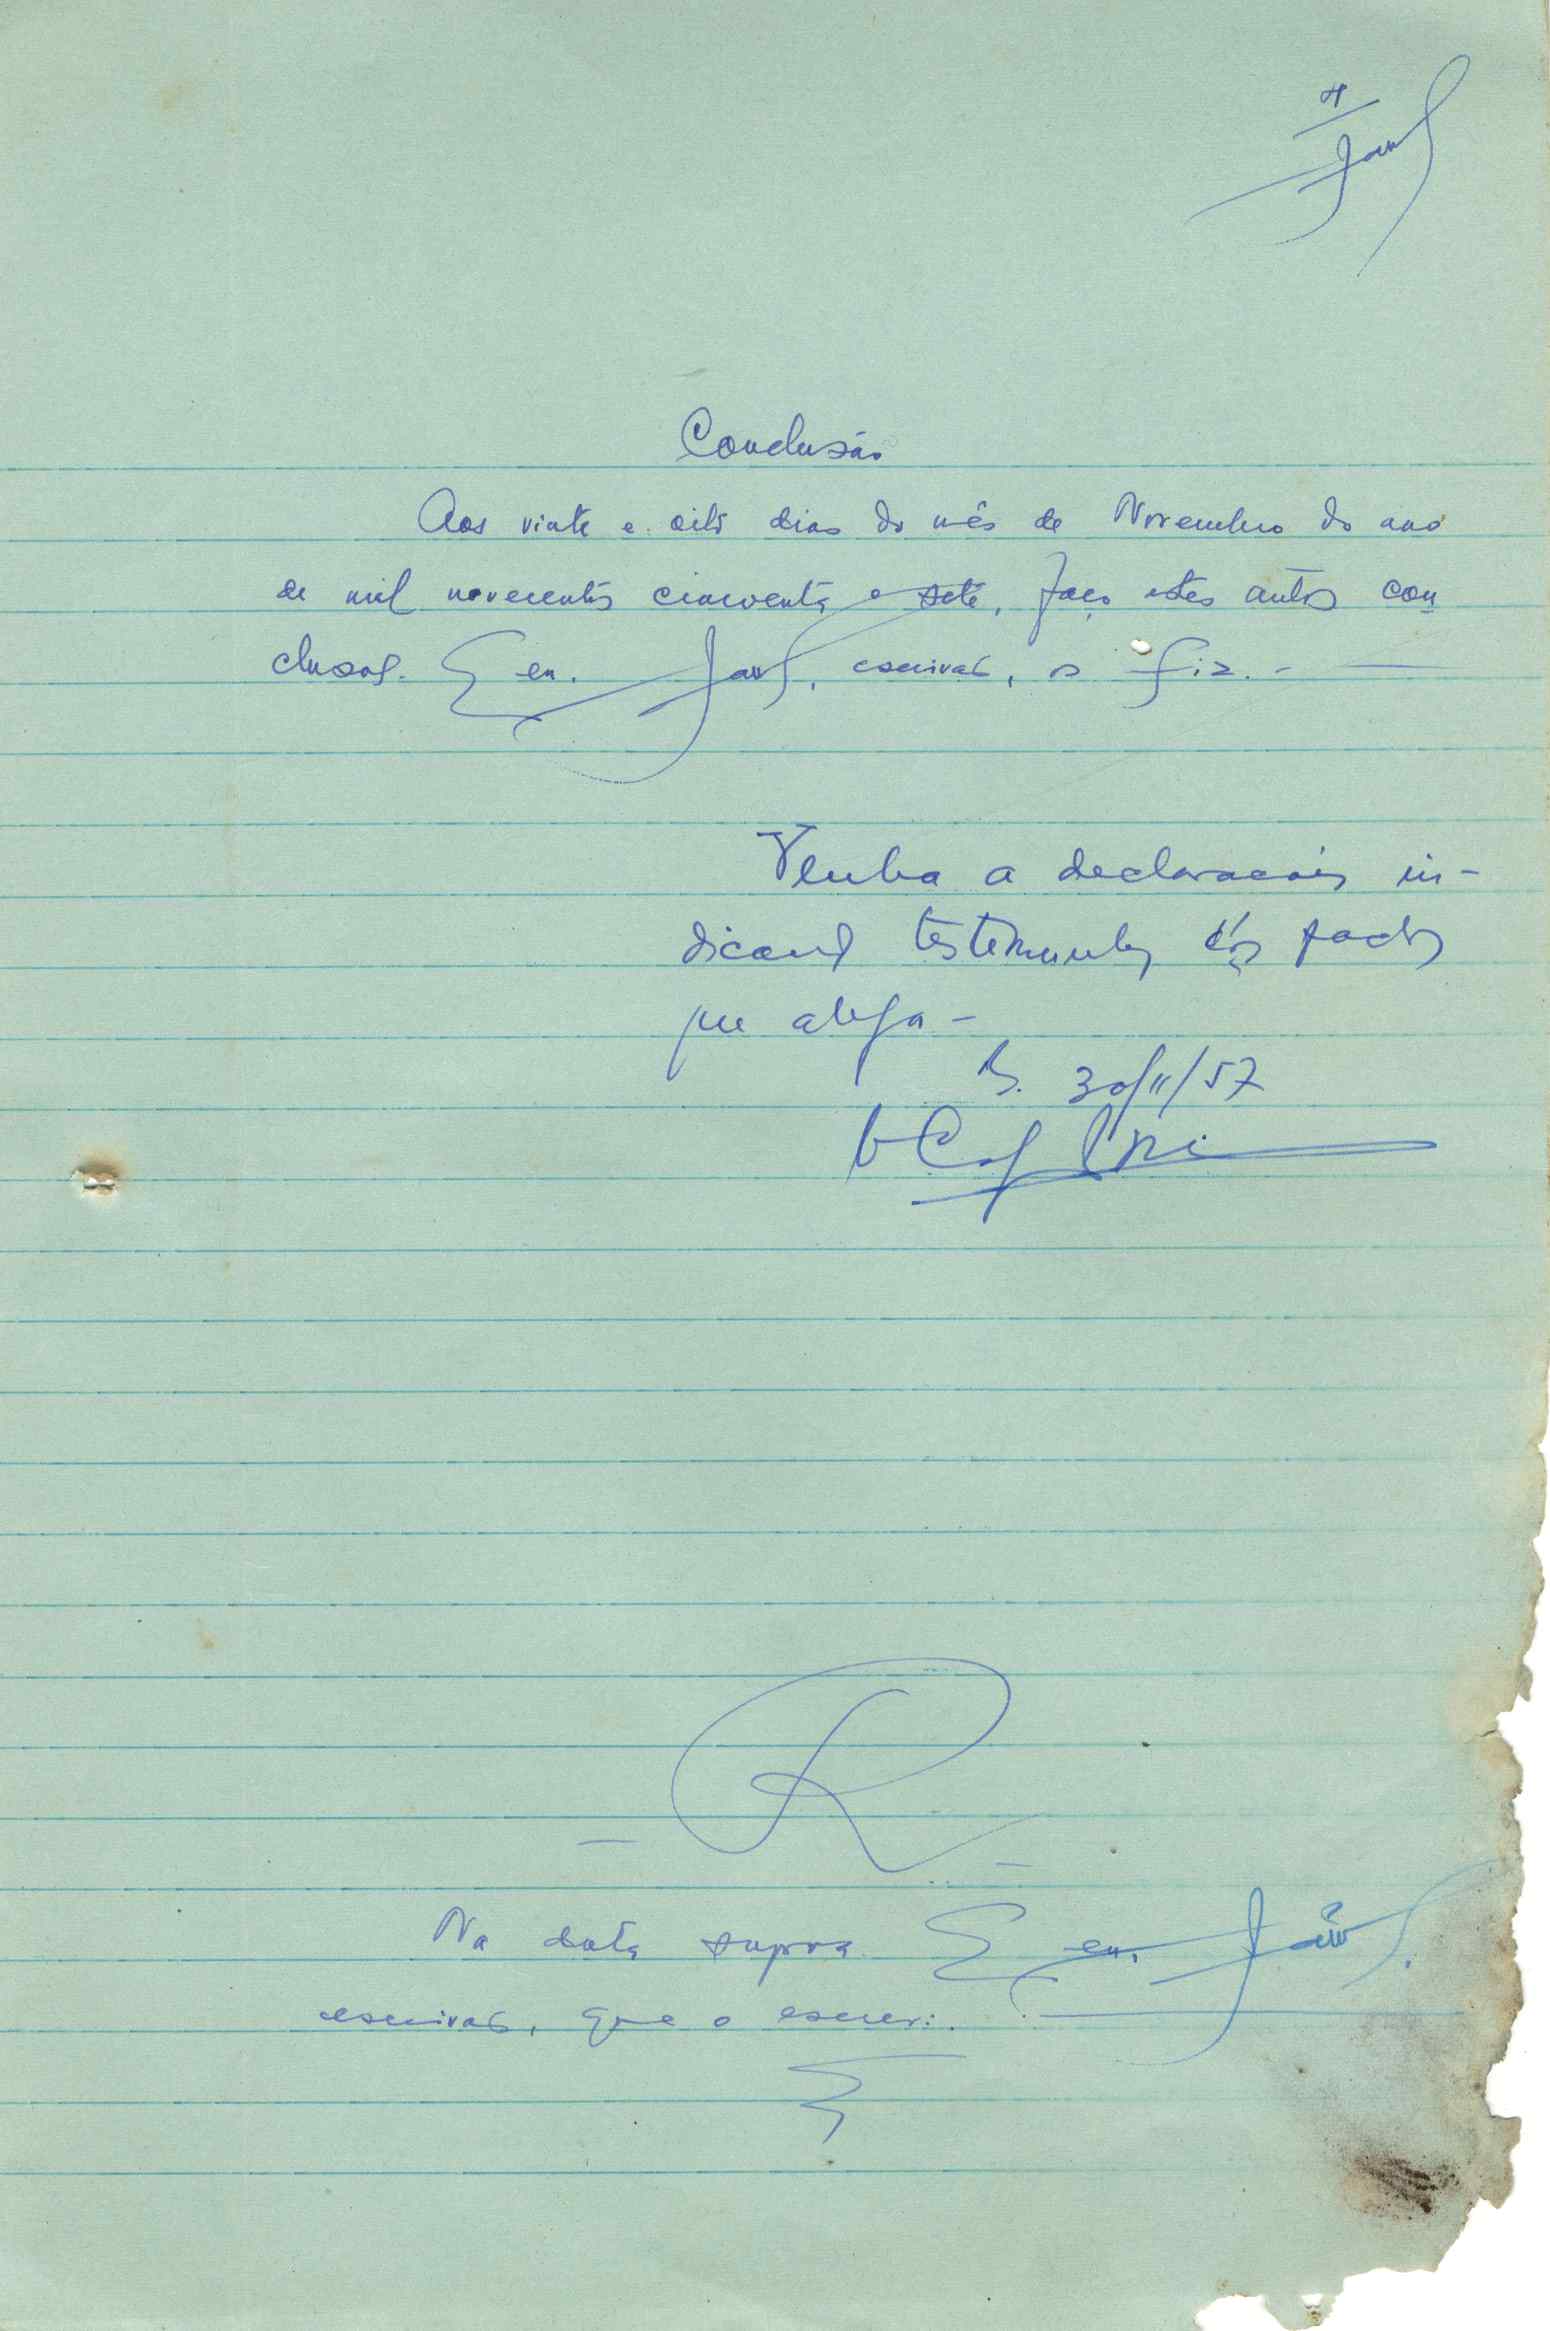 4
Conclusão
Aos vinte e oito dias do mês de Novembro do ano
de mil novecentos cincoenta e sete, faço estes autos con
clusos. E eu, escrivão, o fiz. -
Venha a declaração in-
dicand testemunhas dos factos
que alega -
B. 30/11/57
R
Na data supra E eu,
escrivão, que o escrevi.